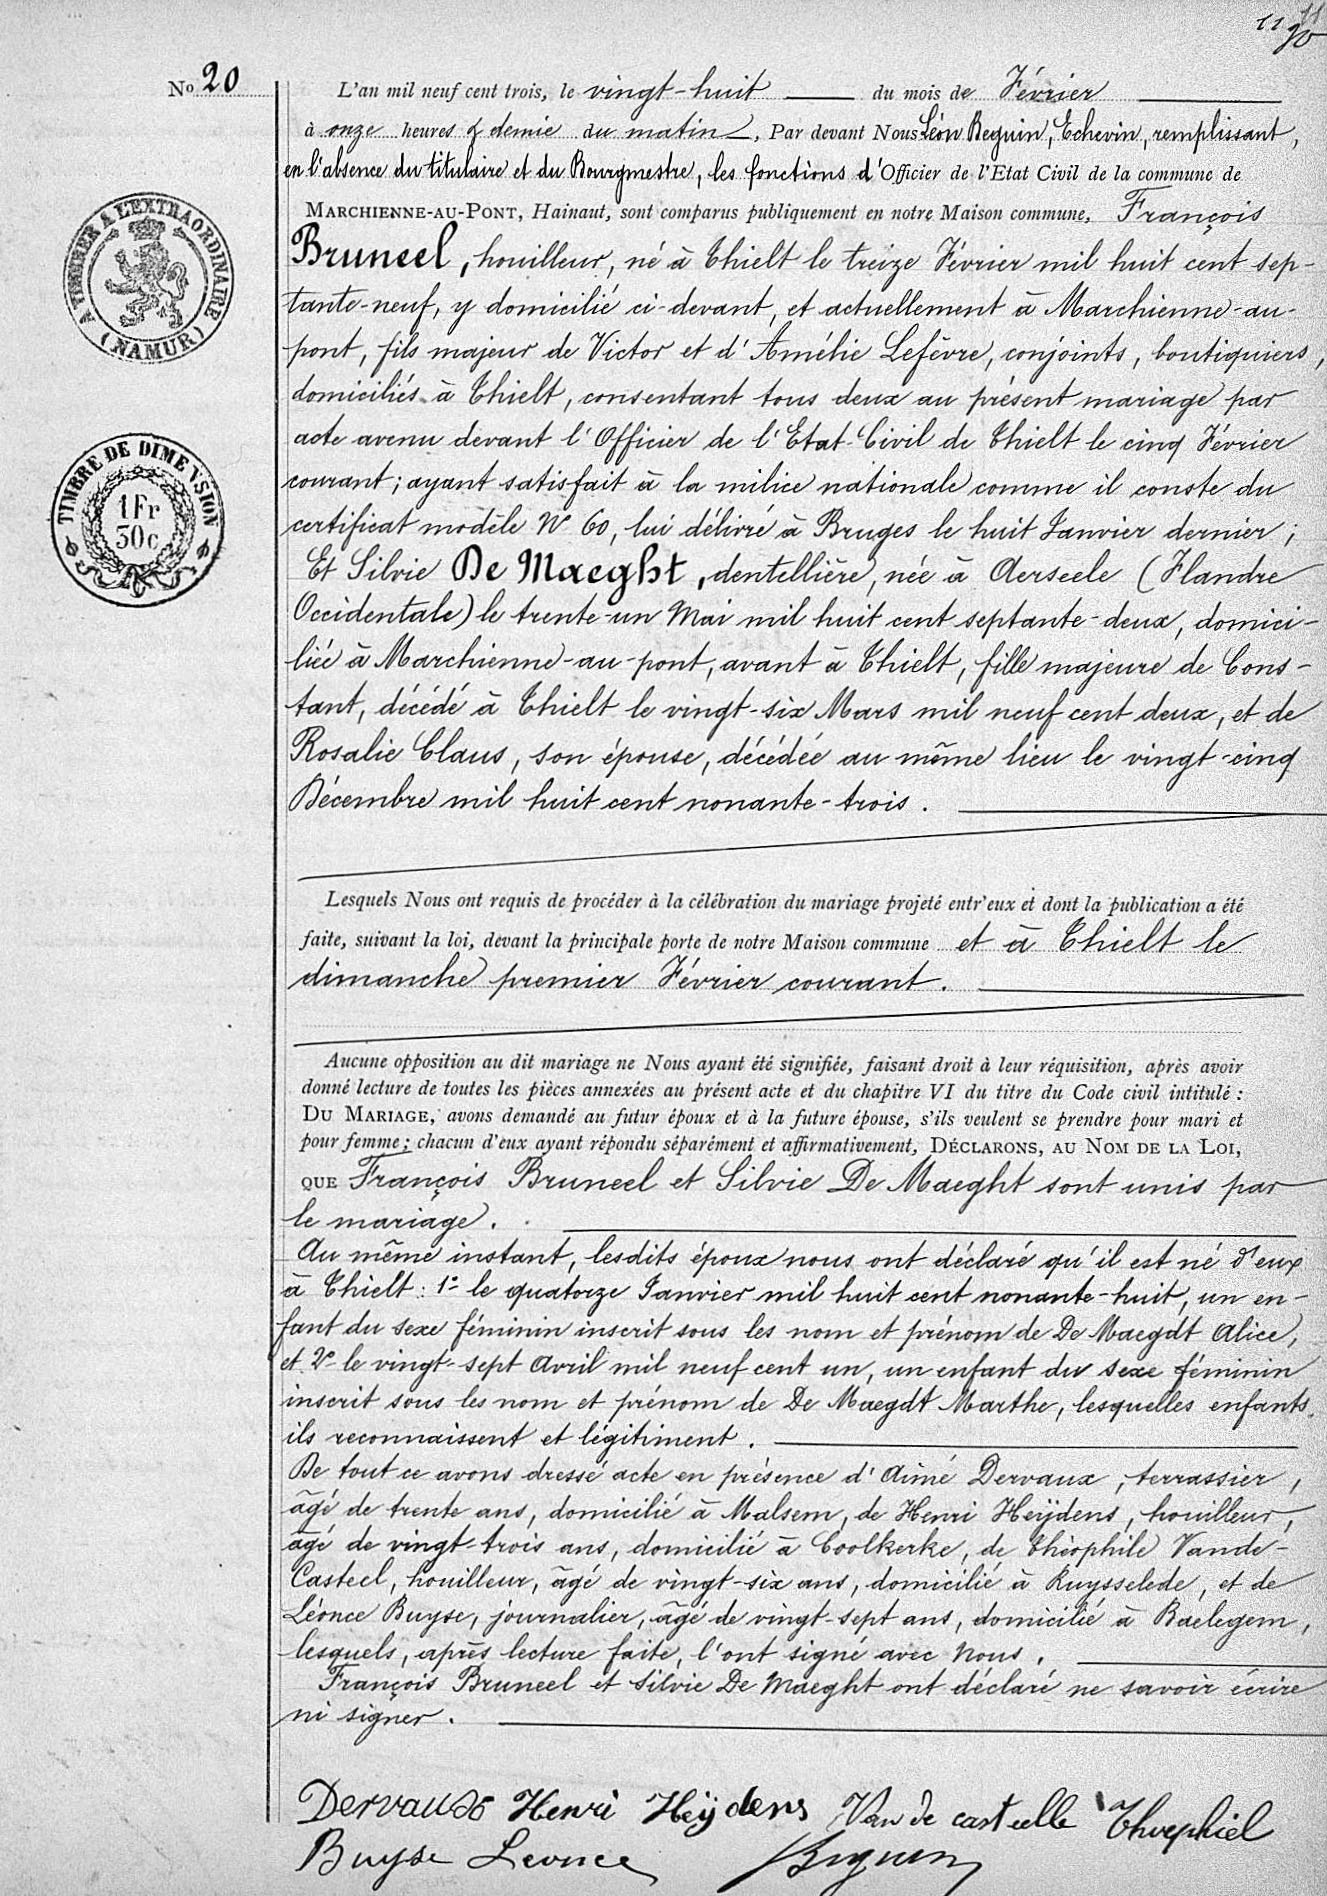 11
11
20
No 20
L'an mil neuf cent trois, le vingt-huit du mois de Février
à onze heures & demie du matin, Par devant Nous Léon Beguin, Echevin, remplissant,
en l'absence du titulaire et du Bourgmestre, les fonctions d'Officier de l'Etat Civil de la commune de
MARCHIENNE-AU-PONT, Hainaut, sont comparus publiquement en notre Maison commune, François
Bruneel, houilleur, né à Thielt le treize Février mil huit cent sep-
tante-neuf, y domicilié ci-devant, et actuellement à Marchienne-au-
pont, fils majeur de Victor et d'Amélie Lefèvre, conjoints, boutiquiers,
domiciliés à Thielt, consentant tous deux au présent mariage par
acte avenu devant l'Officier de l'Etat-Civil de Thielt le cinq Février
courant; ayant satisfait à la milice nationale comme il conste du
certificat modèle N° 60, lui délivré à Bruges le huit Janvier dernier;
Et Silvie De Maeght, dentellière, née à Aerseele (Flandre
Occidentale) le trente-un Mai mil huit cent septante-deux, domici-
liée à Marchienne-au-pont, avant à Thielt, fille majeure de Cons-
tant, décédé à Thielt le vingt-six Mars mil neuf cent deux, et de
Rosalie Claus, son épouse, décédée au même lieu le vingt-cinq
Décembre mil huit cent nonante-trois.
Lesquels Nous ont requis de procéder à la célébration du mariage projeté entr'eux et dont la publication a été
faite, suivant la loi, devant la principale porte de notre Maison commune et à Thielt le
dimanche premier Février courant.
Aucune opposition au dit mariage ne Nous ayant été signifiée, faisant droit à leur réquisition, après avoir
donné lecture de toutes les pièces annexées au présent acte et du chapitre VI du titre du Code civil intitulé :
DU MARIAGE, avons demandé au futur époux et à la future épouse, s'ils veulent se prendre pour mari et
pour femme; chacun d'eux ayant répondu séparément et affirmativement, DÉCLARONS, AU NOM DE LA LOI,
QUE François Bruneel et Silvie De Maeght sont unis par
le mariage.
Au même instant, lesdits époux nous ont déclaré qu'il est né d'eux
à Thielt : 1° le quatorze Janvier mil huit cent nonante-huit, un en-
fant du sexe féminin inscrit sous les nom et prénom de De Maegdt Alice,
et 2° le vingt-sept Avril mil neuf cent un, un enfant du sexe féminin
inscrit sous les nom et prénom de De Maegdt Marthe, lesquelles enfants
ils reconnaissent et légitiment.
De tout ce avons dressé acte en présence d'Aimé Dervaux, terrassier,
âgé de trente ans, domicilié à Malsem, de Henri Heÿdens, houilleur,
âgé de vingt-trois ans, domicilié à Coolkerke, de Théophile Vande-
Casteel, houilleur, âgé de vingt-six ans, domicilié à Ruysselede, et de
Léonce Buyse, journalier, âgé de vingt-sept ans, domicilié à Baelegem,
lesquels, après lecture faite, l'ont signé avec Nous.
François Bruneel et Silvie De Maeght ont déclaré ne savoir écrire
ni signer.
Dervaux Henri Heÿdens Van de casteelle Theophiel
Buyse Leonce Beguin
A TIMBRER A L'EXTRAORDINAIRE
(NAMUR)
TIMBRE DE DIMENSION
1 Fr
30 c